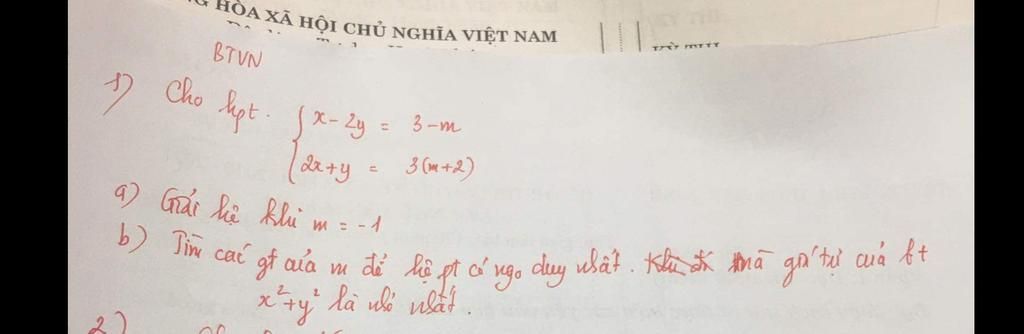 HÒA XÃ HỘI CHỦ NGHĨA VIỆT NAM
BTVN
1) Cho hpt. { x - 2y = 3 - m
2x + y = 3(m+2)
a) Giải hệ khi m = -1
b) Tìm các gt của m để hệ pt có ngo duy nhất. mà giá trị của bt
x² + y² là nhỏ nhất.
2)